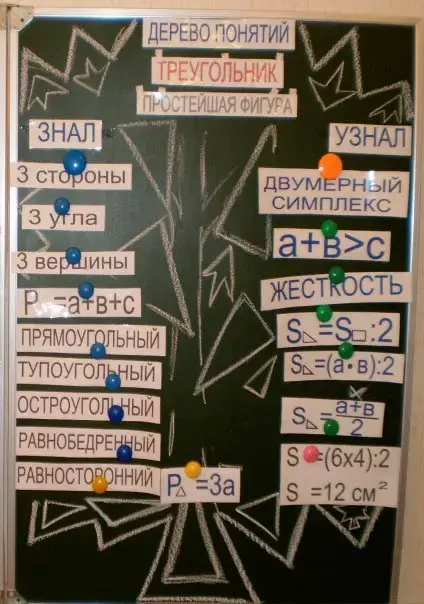 ДЕРЕВО ПОНЯТИЙ
ТРЕУГОЛЬНИК
ПРОСТЕЙШАЯ ФИГУРА
ЗНАЛ
3 стороны
3 угла
3 вершины
P =а+в+с
ПРЯМОУГОЛЬНЫЙ
ТУПОУГОЛЬНЫЙ
ОСТРОУГОЛЬНЫЙ
РАВНОБЕДРЕННЫЙ
РАВНОСТОРОННИЙ
P△ =3а
УЗНАЛ
ДВУМЕРНЫЙ
СИМПЛЕКС
а+в>с
ЖЕСТКОСТЬ
S◺=S□:2
S◺=(а•в):2
S◺=а+в/2
S =(6х4):2
S =12 см²